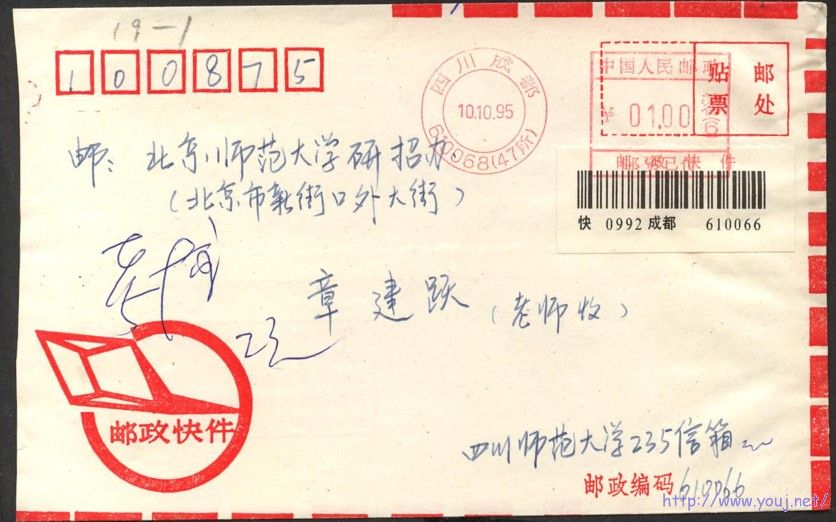 19-1
100875
四川成都
10.10.95
610068(47所)
中国人民邮政
¥ 01.00
贴 邮
票 处
快 0992 成都 610066
邮: 北京师范大学研招办
(北京市新街口外大街)
章建跃 (老师收)
邮政快件
四川师范大学235信箱
邮政编码 610066
http://www.youj.net/